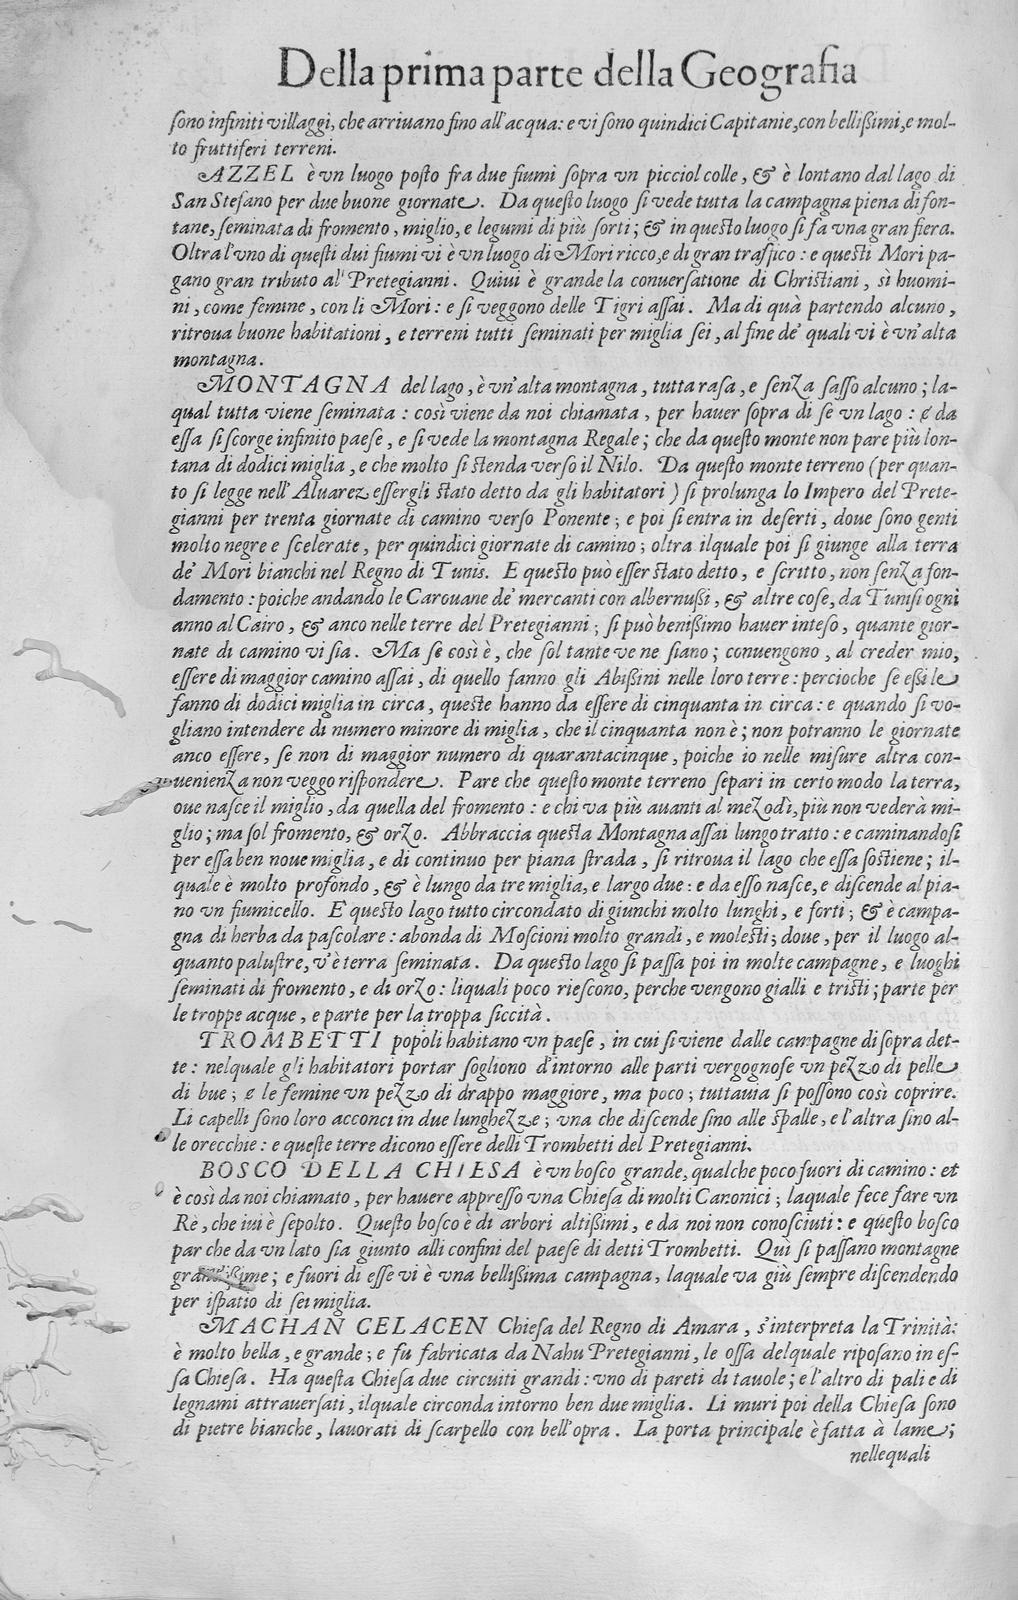 Della prima parte della Geografia
sono infiniti villaggi, che arriuano fino all'acqua: e vi sono quindici Capitanie, con bellißimi, e mol-
to fruttiferi terreni.
AZZEL è vn luogo posto fra due fiumi sopra vn picciol colle, & è lontano dal lago di
San Stefano per due buone giornate. Da questo luogo si vede tutta la campagna piena di fon-
tane, seminata di fromento, miglio, e legumi di più sorti; & in questo luogo si fa vna gran fiera.
Oltra l'vno di questi dui fiumi vi è vn luogo di Mori ricco, e di gran traffico: e questi Mori pa-
gano gran tributo al Pretegianni. Quiui è grande la conuersatione di Christiani, sì huomi-
ni, come femine, con li Mori: e si veggono delle Tigri assai. Ma di quà partendo alcuno,
ritroua buone habitationi, e terreni tutti seminati per miglia sei, al fine de' quali vi è vn'alta
montagna.
MONTAGNA del lago, è vn'alta montagna, tutta rasa, e senza sasso alcuno; la-
qual tutta viene seminata: così viene da noi chiamata, per hauer sopra di se vn lago: & da
essa si scorge infinito paese, e si vede la montagna Regale; che da questo monte non pare più lon-
tana di dodici miglia, e che molto si stenda verso il Nilo. Da questo monte terreno (per quan-
to si legge nell'Aluarez essergli stato detto da gli habitatori) si prolunga lo Impero del Prete-
gianni per trenta giornate di camino verso Ponente; e poi si entra in deserti, doue sono genti
molto negre e scelerate, per quindici giornate di camino; oltra ilquale poi si giunge alla terra
de' Mori bianchi nel Regno di Tunis. E questo può esser stato detto, e scritto, non senza fon-
damento: poiche andando le Carouane de' mercanti con albernußi, & altre cose, da Tunisi ogni
anno al Cairo, & anco nelle terre del Pretegianni; si può benißimo hauer inteso, quante gior-
nate di camino vi sia. Ma se così è, che sol tante ve ne siano; conuengono, al creder mio,
essere di maggior camino assai, di quello fanno gli Abißini nelle loro terre: percioche se eßi le
fanno di dodici miglia in circa, queste hanno da essere di cinquanta in circa: e quando si vo-
gliano intendere di numero minore di miglia, che il cinquanta non è; non potranno le giornate
anco essere, se non di maggior numero di quarantacinque, poiche io nelle misure altra con-
uenienza non veggo rispondere. Pare che questo monte terreno separi in certo modo la terra,
oue nasce il miglio, da quella del fromento: e chi va più auanti al mezodì, più non vederà mi-
glio; ma sol fromento, & orzo. Abbraccia questa Montagna assai lungo tratto: e caminandosi
per essa ben noue miglia, e di continuo per piana strada, si ritroua il lago che essa sostiene; il-
quale è molto profondo, & è lungo da tre miglia, e largo due: e da esso nasce, e discende al pia-
no vn fiumicello. E' questo lago tutto circondato di giunchi molto lunghi, e forti; & è campa-
gna di herba da pascolare: abonda di Moscioni molto grandi, e molesti; doue, per il luogo al-
quanto palustre, v'è terra seminata. Da questo lago si passa poi in molte campagne, e luoghi
seminati di fromento, e di orzo: liquali poco riescono, perche vengono gialli e tristi; parte per
le troppe acque, e parte per la troppa siccità.
TROMBETTI popoli habitano vn paese, in cui si viene dalle campagne di sopra det-
te: nelquale gli habitatori portar sogliono d'intorno alle parti vergognose vn pezzo di pelle
di bue; & le femine vn pezzo di drappo maggiore, ma poco; tuttauia si possono così coprire.
Li capelli sono loro acconci in due lunghezze; vna che discende sino alle spalle, e l'altra sino al-
le orecchie: e queste terre dicono essere delli Trombetti del Pretegianni.
BOSCO DELLA CHIESA è vn bosco grande, qualche poco fuori di camino: et
è così da noi chiamato, per hauere appresso vna Chiesa di molti Canonici; laquale fece fare vn
Rè, che iui è sepolto. Questo bosco è di arbori altißimi, e da noi non conosciuti: e questo bosco
par che da vn lato sia giunto alli confini del paese di detti Trombetti. Quì si passano montagne
grandißime; e fuori di esse vi è vna bellißima campagna, laquale va giù sempre discendendo
per ispatio di sei miglia.
MACHAN CELACEN Chiesa del Regno di Amara, s'interpreta la Trinità:
è molto bella, e grande; e fu fabricata da Nahu Pretegianni, le ossa delquale riposano in es-
sa Chiesa. Ha questa Chiesa due circuiti grandi: vno di pareti di tauole; e l'altro di pali e di
legnami attrauersati, ilquale circonda intorno ben due miglia. Li muri poi della Chiesa sono
di pietre bianche, lauorati di scarpello con bell'opra. La porta principale è fatta à lame;
nellequali